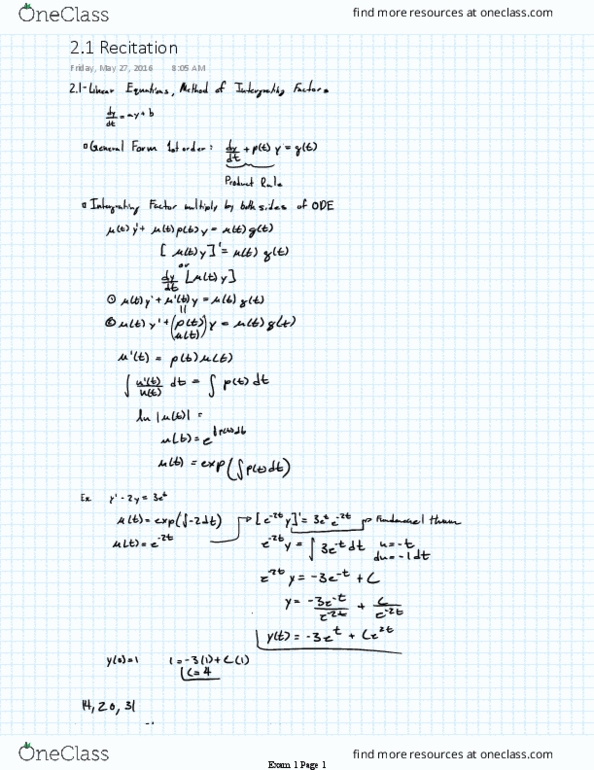 OneClass
find more resources at oneclass.com
2.1 Recitation
Friday, May 27, 2016 8:05 AM
2.1-Linear Equations, Method of Integrating Factors
dy/dt = ay + b
General Form 1st order: dy/dt + p(t) y = g(t)
Product Rule
Integrating Factor multiply by both sides of ODE
μ(t) y' + μ(t) p(t) y = μ(t) g(t)
[ μ(t) y ]' = μ(t) g(t)
or
dy/dt [μ(t) y]
① μ(t) y' + μ'(t) y = μ(t) g(t)
||
② μ(t) y' + (p(t) μ(t)) y = μ(t) g(t)
μ'(t) = p(t) μ(t)
∫ μ'(t)/μ(t) dt = ∫ p(t) dt
ln |μ(t)| =
μ(t) = e^∫p(t)dt
μ(t) = exp(∫p(t)dt)
Ex y' - 2y = 3e^t
μ(t) = exp(∫-2dt) [e^-2t y]' = 3e^t e^-2t
μ(t) = e^-2t e^-2t y = ∫ 3e^-t dt u = -t
du = -1dt
e^-2t y = -3e^-t + C
y = -3e^-t/e^-2t + C/e^-2t
y(t) = -3e^t + Ce^2t
y(0) = 1 1 = -3(1) + C(1)
C = 4
14, 20, 31
OneClass
find more resources at oneclass.com
Exam 1 Page 1